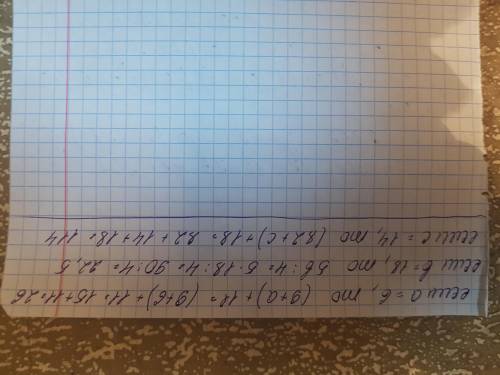 если a=6, то (9+a)+11= (9+6)+11= 15+11=26
если b=18, то 5b:4= 5·18:4= 90:4= 22,5
если c=14, то (82+c)+18= 82+14+18= 114